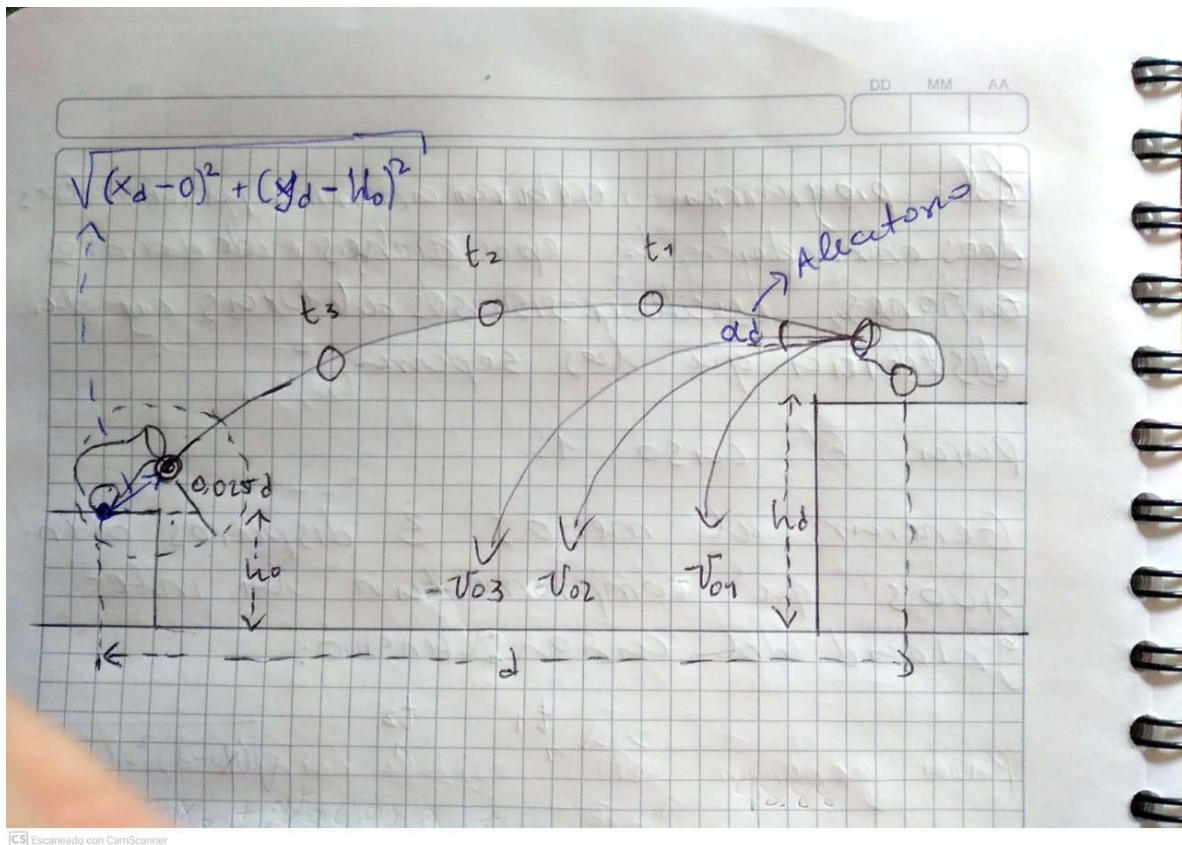 DD MM AA
√(xd - 0)² + (yd - H₀)²
Aleatorio
t₂
t₁
t₃
αd
0,025d
h₀
hd
-V₀₃
-V₀₂
-V₀₁
d
CS Escaneado con CamScanner